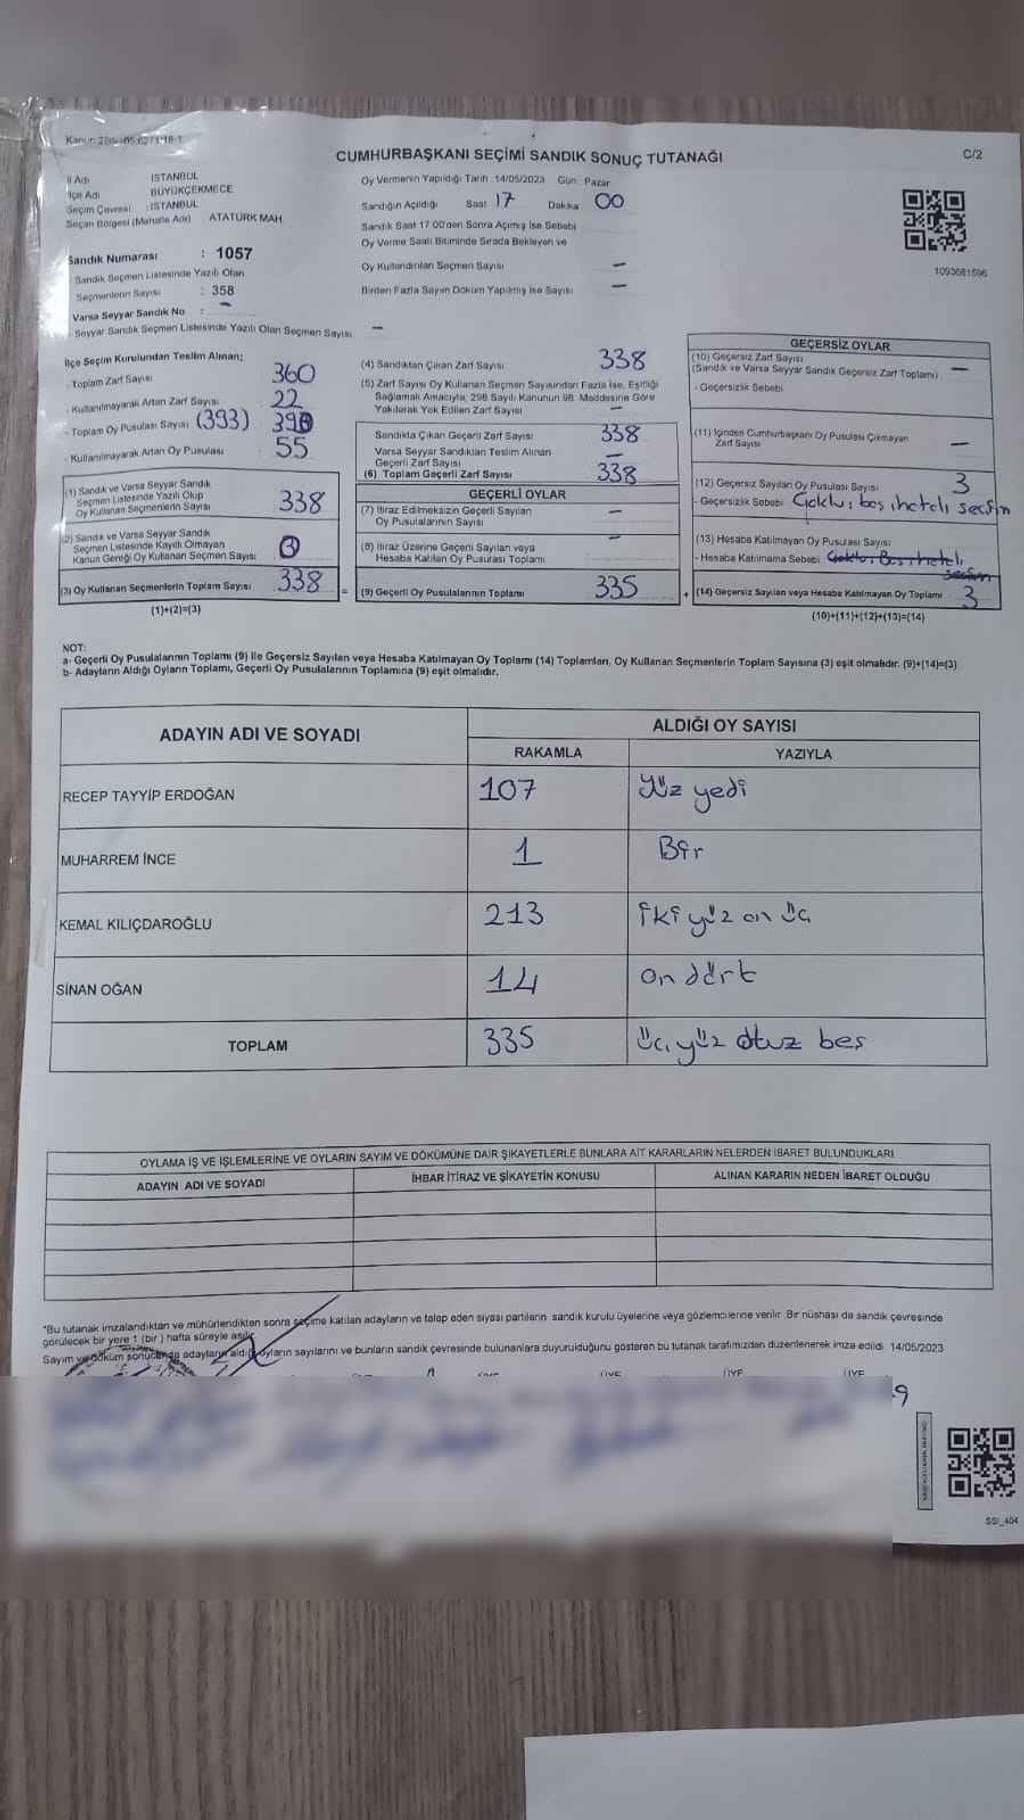 CUMHURBAŞKANI SEÇİMİ SANDIK SONUÇ TUTANAĞI
C/2
İl Adı İSTANBUL
İlçe Adı BÜYÜKÇEKMECE
Seçim Çevresi : İSTANBUL
Seçim Bölgesi (Mahalle Adı) : ATATÜRK MAH.
Oy Vermenin Yapıldığı Tarih : 14/05/2023 Gün : Pazar
Sandığın Açıldığı Saat 17 Dakika 00
Sandık Saat 17.00'den Sonra Açılmış İse Sebebi
Oy Verme Saati Bitiminde Sırada Bekleyen ve
Oy Kullandırılan Seçmen Sayısı –
Birden Fazla Sayım Döküm Yapılmış İse Sayısı –
1093681596
Sandık Numarası : 1057
Sandık Seçmen Listesinde Yazılı Olan
Seçmenlerin Sayısı : 358
Varsa Seyyar Sandık No : –
Seyyar Sandık Seçmen Listesinde Yazılı Olan Seçmen Sayısı –
İlçe Seçim Kurulundan Teslim Alınan;
- Toplam Zarf Sayısı 360
- Kullanılmayarak Artan Zarf Sayısı 22
- Toplam Oy Pusulası Sayısı (393)
- Kullanılmayarak Artan Oy Pusulası : 55
(1) Sandık ve Varsa Seyyar Sandık
Seçmen Listesinde Yazılı Olup
Oy Kullanan Seçmenlerin Sayısı 338
(2) Sandık ve Varsa Seyyar Sandık
Seçmen Listesinde Kayıtlı Olmayan
Kanun Gereği Oy Kullanan Seçmen Sayısı
(3) Oy Kullanan Seçmenlerin Toplam Sayısı 338 =
(1)+(2)=(3)
(4) Sandıktan Çıkan Zarf Sayısı 338
(5) Zarf Sayısı Oy Kullanan Seçmen Sayısından Fazla İse, Eşitliği
Sağlamak Amacıyla, 298 Sayılı Kanunun 98. Maddesine Göre
Yakılarak Yok Edilen Zarf Sayısı –
Sandıkta Çıkan Geçerli Zarf Sayısı 338
Varsa Seyyar Sandıktan Teslim Alınan
Geçerli Zarf Sayısı –
(6) Toplam Geçerli Zarf Sayısı 338
GEÇERLİ OYLAR
(7) İtiraz Edilmeksizin Geçerli Sayılan
Oy Pusulalarının Sayısı –
(8) İtiraz Üzerine Geçerli Sayılan veya
Hesaba Katılan Oy Pusulası Toplamı –
(9) Geçerli Oy Pusulalarının Toplamı 335 +
GEÇERSİZ OYLAR
(10) Geçersiz Zarf Sayısı
(Sandık ve Varsa Seyyar Sandık Geçersiz Zarf Toplamı) –
- Geçersizlik Sebebi
(11) İçinden Cumhurbaşkanı Oy Pusulası Çıkmayan
Zarf Sayısı –
(12) Geçersiz Sayılan Oy Pusulası Sayısı 3
- Geçersizlik Sebebi
(13) Hesaba Katılmayan Oy Pusulası Sayısı
- Hesaba Katılmama Sebebi
(14) Geçersiz Sayılan veya Hesaba Katılmayan Oy Toplamı 3
(10)+(11)+(12)+(13)=(14)
NOT:
a- Geçerli Oy Pusulalarının Toplamı (9) ile Geçersiz Sayılan veya Hesaba Katılmayan Oy Toplamı (14) Toplamları, Oy Kullanan Seçmenlerin Toplam Sayısına (3) eşit olmalıdır. (9)+(14)=(3)
b- Adayların Aldığı Oyların Toplamı, Geçerli Oy Pusulalarının Toplamına (9) eşit olmalıdır.
ADAYIN ADI VE SOYADI ALDIĞI OY SAYISI
RAKAMLA YAZIYLA
RECEP TAYYİP ERDOĞAN 107 Yüz yedi
MUHARREM İNCE 1 Bir
KEMAL KILIÇDAROĞLU 213 iki yüz on üç
SİNAN OĞAN 14 on dört
TOPLAM 335 üç yüz otuz beş
OYLAMA İŞ VE İŞLEMLERİNE VE OYLARIN SAYIM VE DÖKÜMÜNE DAİR ŞİKAYETLERLE BUNLARA AİT KARARLARIN NELERDEN İBARET BULUNDUKLARI
ADAYIN ADI VE SOYADI İHBAR İTİRAZ VE ŞİKAYETİN KONUSU ALINAN KARARIN NEDEN İBARET OLDUĞU
*Bu tutanak imzalandıktan ve mühürlendikten sonra seçime katılan adayların ve talep eden siyasi partilerin sandık kurulu üyelerine veya gözlemcilerine verilir. Bir nüshası da sandık çevresinde
görülecek bir yere 1 (bir) hafta süreyle asılır.
Sayım ve döküm sonucunda adayların aldığı oyların sayılarını ve bunların sandık çevresinde bulunanlara duyurulduğunu gösteren bu tutanak tarafımızdan düzenlenerek imza edildi. 14/05/2023
ÜYE ÜYE ÜYE
9
SSI_404